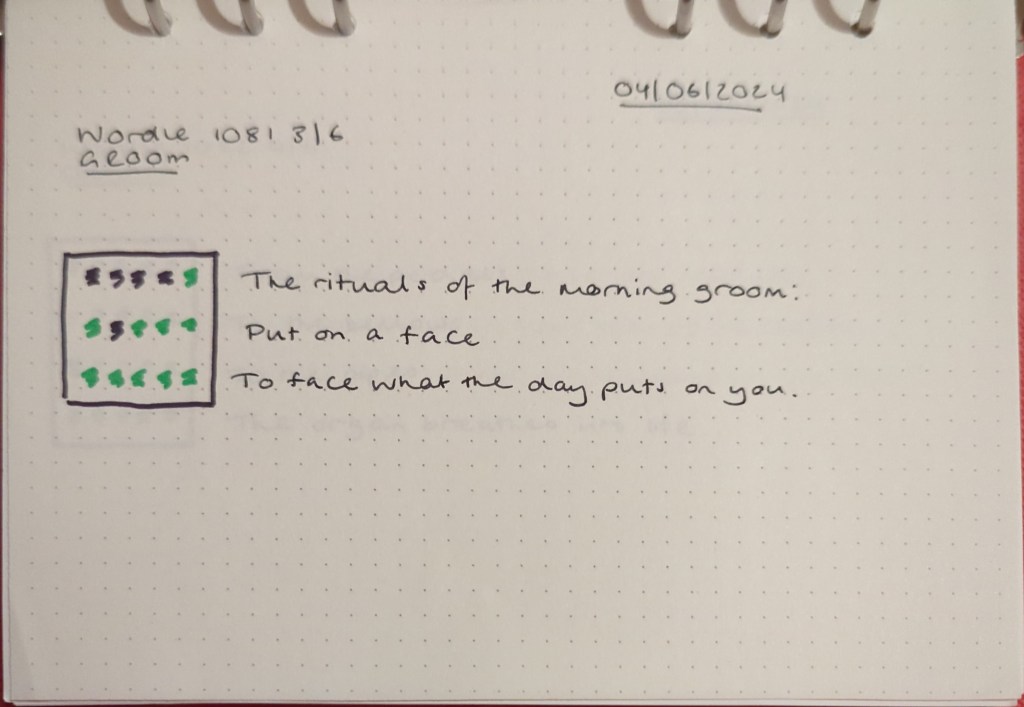 04/06/2024
Wordle 1081 3/6
Groom
The rituals of the morning groom:
Put on a face
To face what the day puts on you.